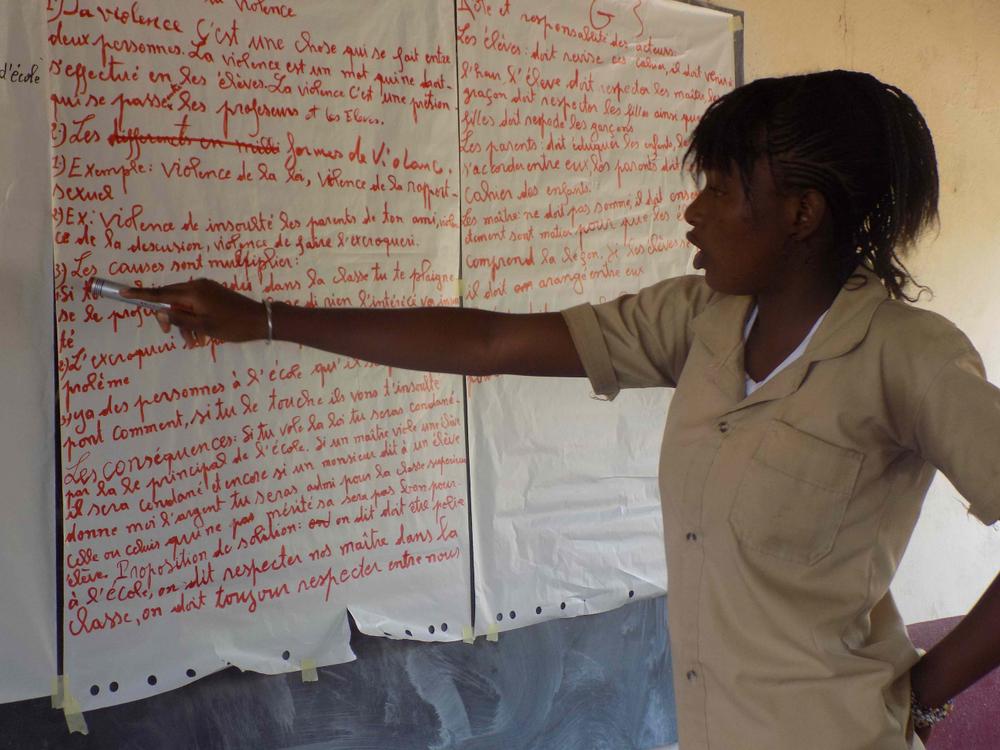 d'école
la violence
1) La violence C'est une chose qui se fait entre
deux personnes. La violence est un mot qui ne doit
s'effectué en les élèves. La violence C'est une prétion
qui se passe les professeurs et les Elèves.
2) Les formes de Violanc,
1) Exemple: violence de la loi, violence de la rapport
sexuel
2) Ex: violence de insoulté les parents de ton ami,
ce de la descusion, violence de faire l'excroqueri.
3) Les causes sont multiplier:
Si dans la classe tu te plaigne
di rien l'intéricé va
se le
té
2) L'excroqueri
prolème
3) ya des personnes à l'école qu'
pont Comment, si tu le touche ils vons t'insoulté
Les conséquences: Si tu vole la loi tu seras condané
par la le principal de l'école. Si un maître viole une
il sera condané d'encore si un monsieur dit à un élève
donne moi l'argent tu seras admi pour la classe superieur
Celle ou celuis qui ne pas mérité sa sera pas bon pour
élève. Proposition de solution: on dit doit être polie
à l'école, on dit respecter nos maître dans la
classe, on doit toujour respecter entre nous
G3
Rôle et responsabilité des acteurs:
Les élèves: doit revise ces Cahier, il doit venir à
l'heur l'élève doit respecter les maître, les
graçon doit respecter les filles ainsi que
filles doit respede les garçons
Les parents: doit éduquer les enfants,
s'accorder entre eux, les parents doit
Cahier des enfants.
Les maître: ne doit pas somme, il doit
dement sont matier pour que les
comprend la leçon. Si les élèves
il doit arangé entre eux